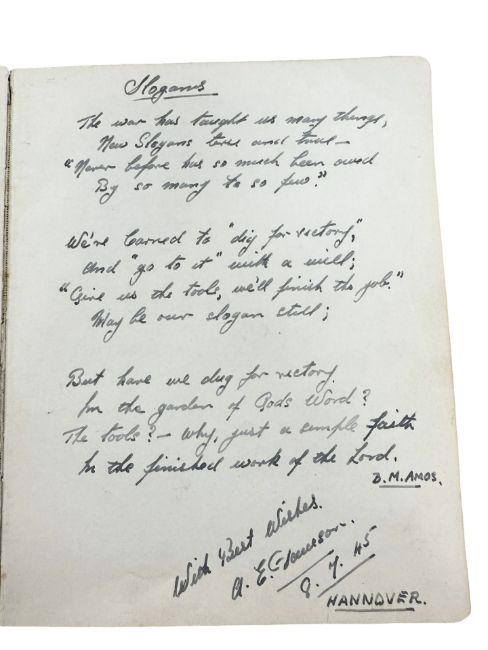 Slogans
The war has taught us many things,
New Slogans terse and true—
"Never before has so much been owed
By so many to so few."
We've learned to "dig for victory",
And "go to it" with a will;
"Give us the tools, we'll finish the job."
May be our slogan still;
But have we dug for victory
In the garden of Gods Word?
The tools? — Why, just a simple faith
In the finished work of the Lord.
B.M. AMOS.
With Best Wishes.
A. E.
8.7.45
HANNOVER.